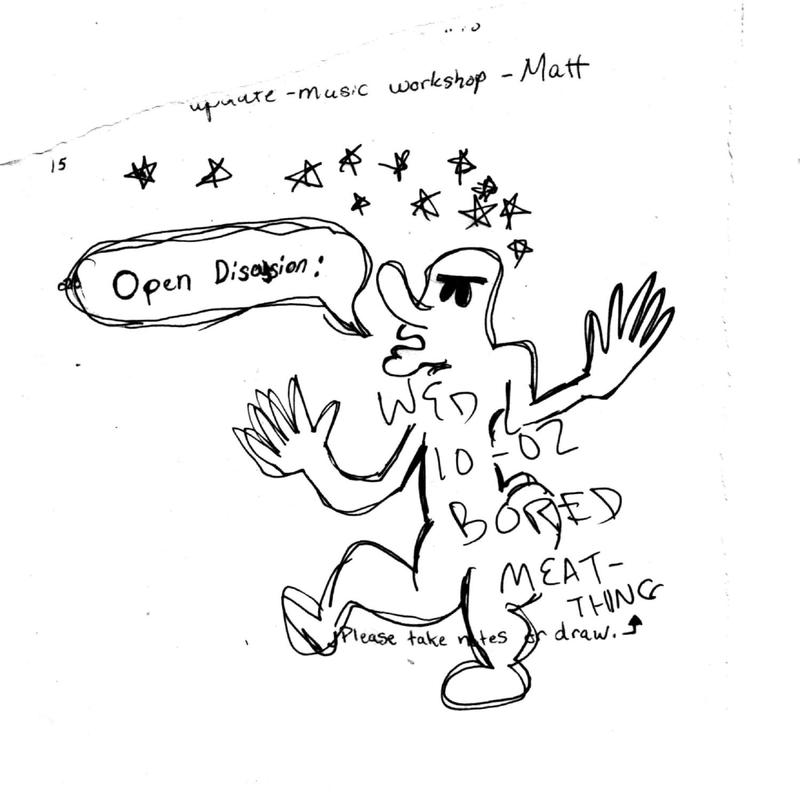 update -music workshop -Matt
15
Open Discussion:
WED
10-02
BORED
MEAT-
THING
Please take notes or draw.